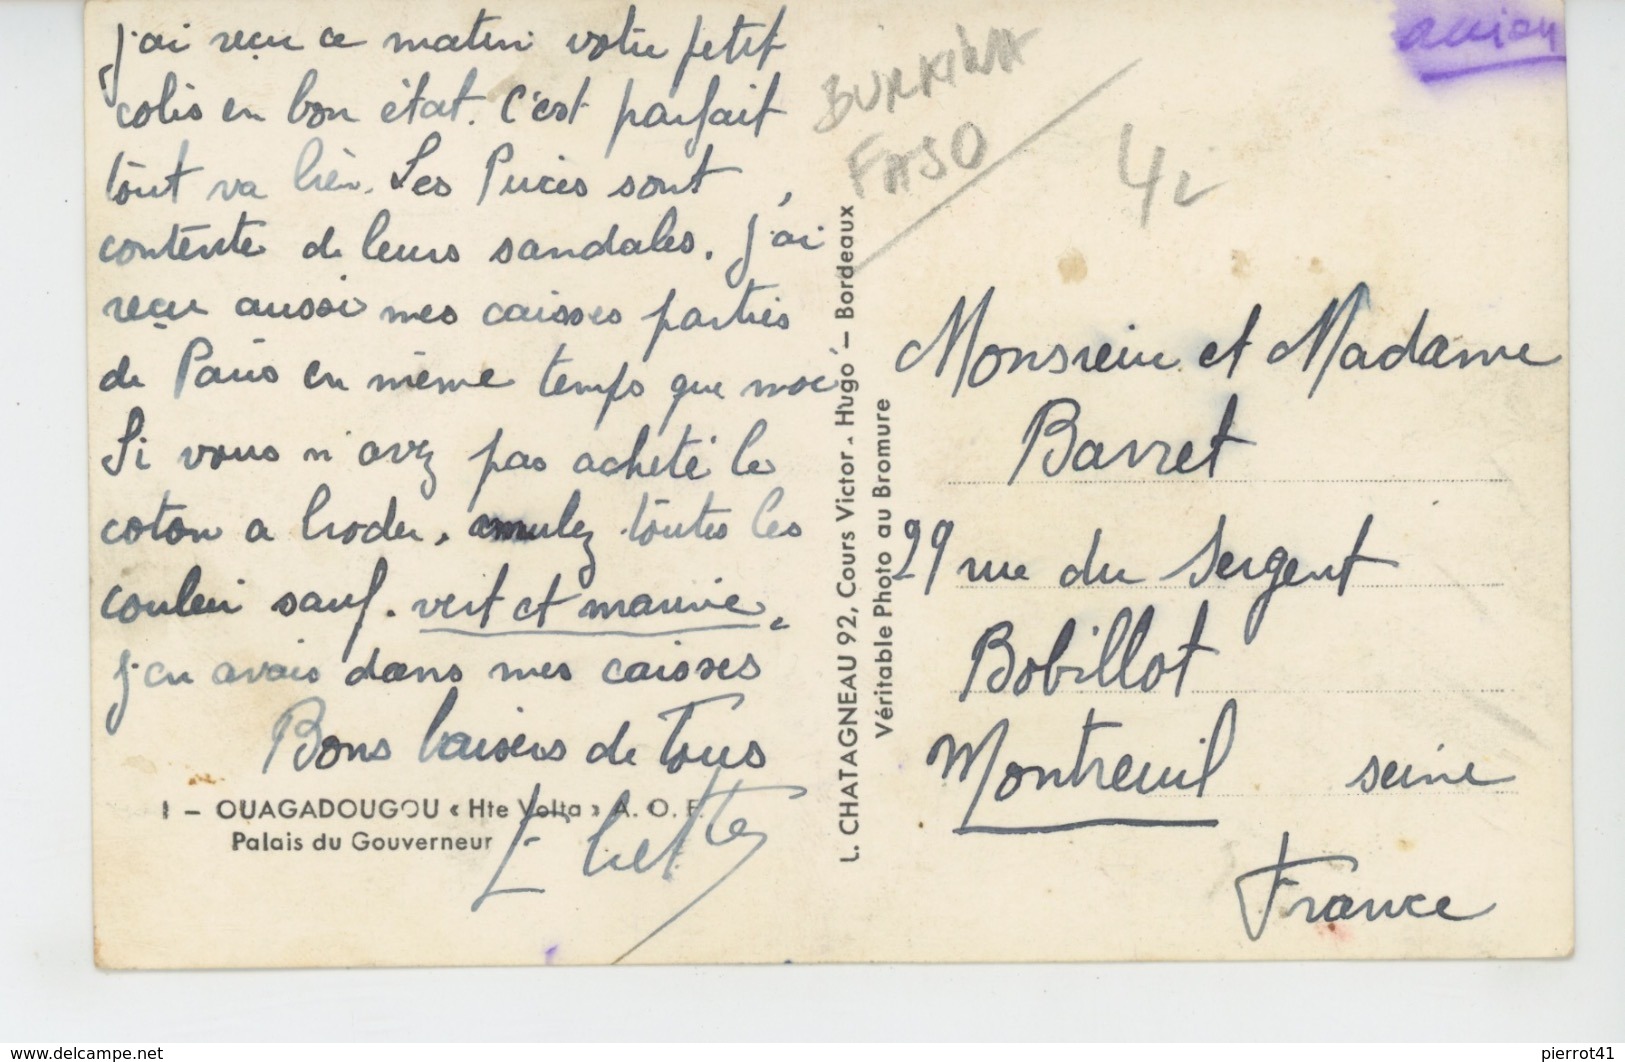 J'ai reçu ce matin votre petit
colis en bon état. C'est parfait
tout va bien. Les Puces sont
contente de leurs sandales. J'ai
reçu aussi mes caisses parties
de Paris en même temps que moi
Si vous n'avez pas acheté le
coton a broder. toutes les
couleur sauf. vert et mauve.
j'en avais dans mes caisses
Bons baisers de Tous
1 - OUAGADOUGOU « Hte Volta » A. O. F.
Palais du Gouverneur
L. CHATAGNEAU 92, Cours Victor - Hugo - Bordeaux
Véritable Photo au Bromure
BURKINA
FASO
avion
Monsieur et Madame
Barret
29 rue du Sergent
Bobillot
Montreuil seine
France
www.delcampe.net
pierrot41